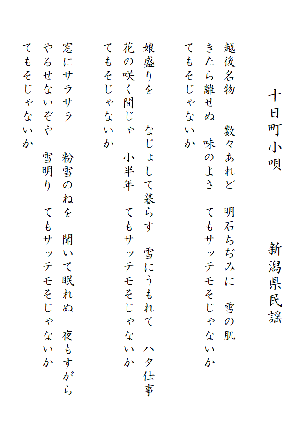 十日町小唄　新潟県民謡
越後名物　数々あれど　明石ちぢみに　雪の肌
きたら離せぬ　味のよさ　てもサッテモそじゃないか
てもそじゃないか
娘盛りを　なじょして暮らす　雪にうもれて　ハタ仕事
花の咲く間じゃ　小半年　てもサッテモそじゃないか
てもそじゃないか
窓にサラサラ　粉雪のねを　聞いて眠れぬ　夜もすがら
やるせないぞや　雪明り　てもサッテモそじゃないか
てもそじゃないか